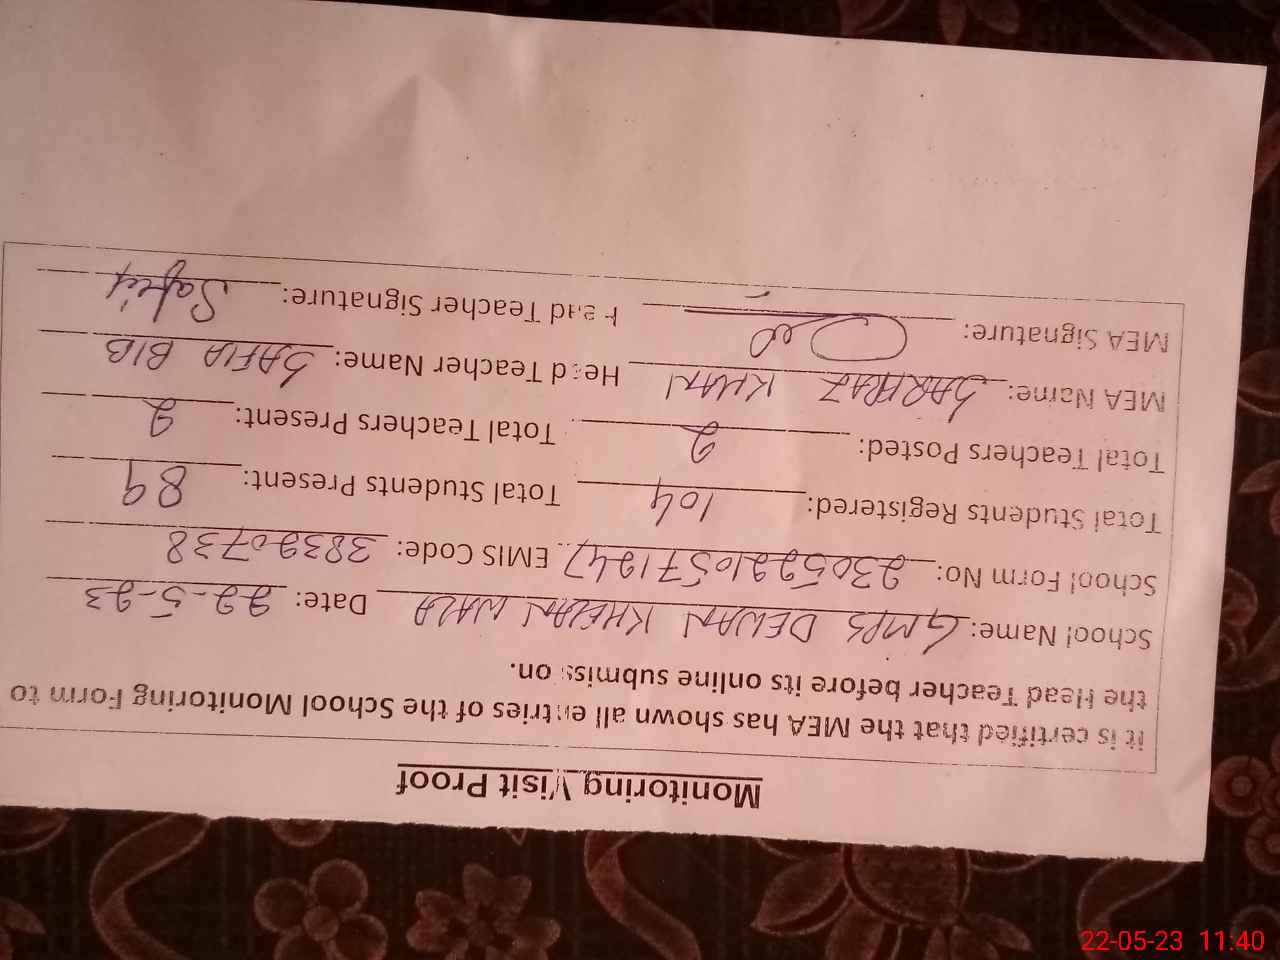 Monitoring Visit Proof
It is certified that the MEA has shown all entries of the School Monitoring Form to
the Head Teacher before its online submission.
School Name: GMPS DEWAN KHELAN WALA Date: 22-5-23
School Form No: 23052210571247 EMIS Code: 38320738
Total Students Registered: 104 Total Students Present: 89
Total Teachers Posted: 2 Total Teachers Present: 2
MEA Name: SARFRAZ KHAN Head Teacher Name: SAFIA BIB
MEA Signature: Head Teacher Signature: Safia
22-05-23 11:40